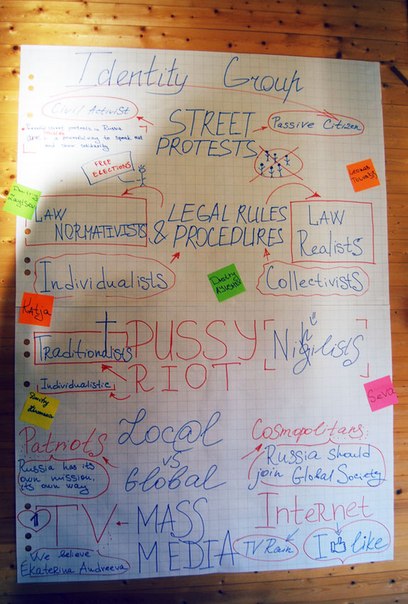 Identity Group
Civil Activist
STREET
PROTESTS
Passive Citizen
protests in Russia
to speak out
FREE
ELECTIONS
LAW
NORMATIVISTS
LEGAL RULES
& PROCEDURES
LAW
Realists
Individualists
Collectivists
Katja
Traditionalists
Individualistic
PUSSY
RIOT
Nihilists
Seva
Patriots
Russia has its
own mission,
its own way
Local
vs
Global
Cosmopolitans
Russia should
join Global Society
TV
We believe
Ekaterina Andreeva
MASS
MEDIA
Internet
TV Rain
I like